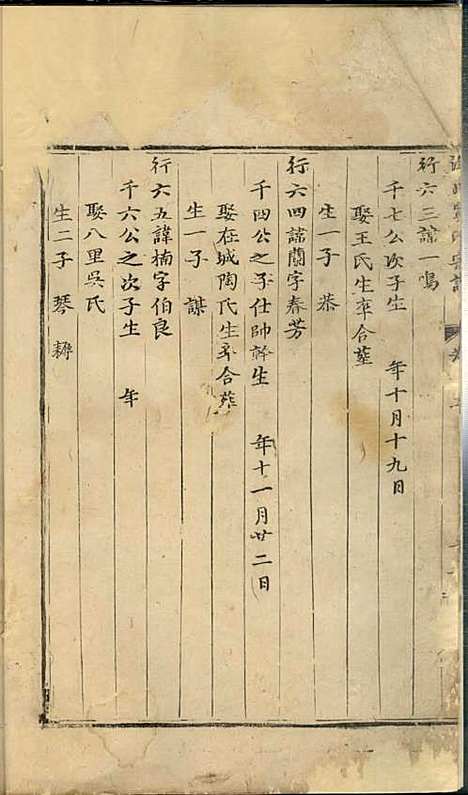 行六三諱一鳴
千七公次子生　年十月十九日
娶王氏生卒合塟
生一子　恭
行六四諱蘭字春芳
千四公之子仕帥幹生　年十一月廿二日
娶在城陶氏生卒合葬
生一子　諆
行六五諱楠字伯良
千六公之次子生　年
娶八里吳氏
生二子　琴